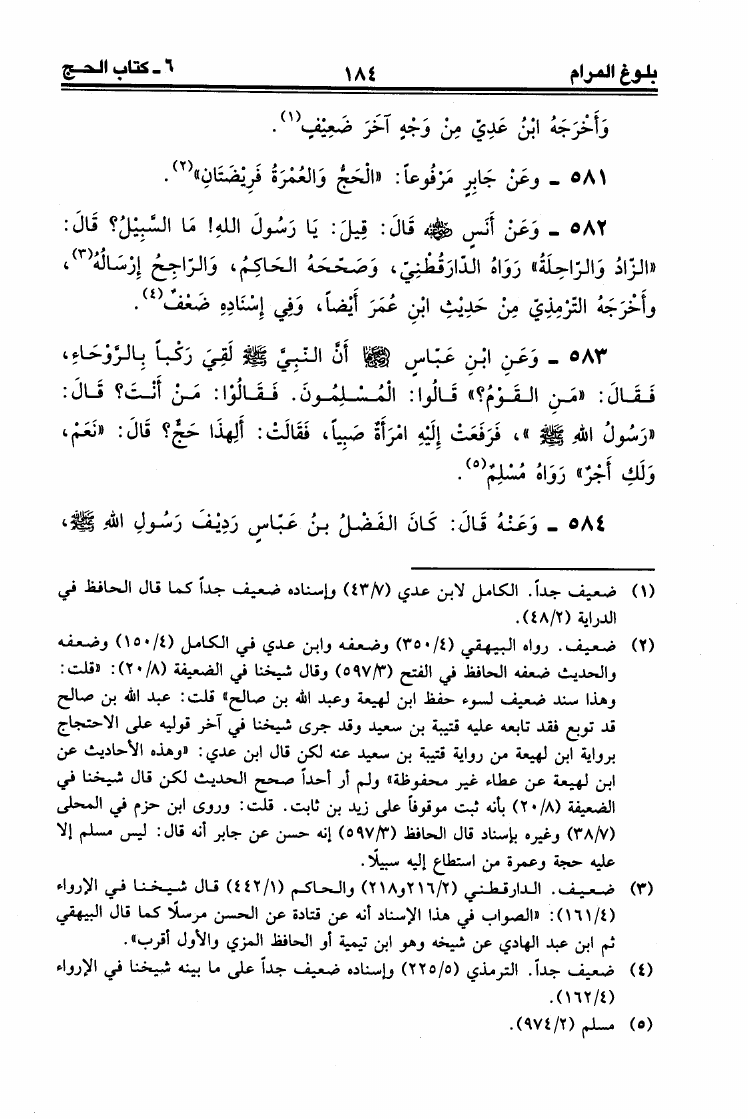 بلوغ المرام ١٨٤ ٦ - كتاب الحج
وَأَخْرَجَهُ ابْنُ عَدِيّ مِنْ وَجْهٍ آخَرَ ضَعِيْفٍ(١).
٥٨١ - وعَنْ جَابِرٍ مَرْفُوعاً: «الْحَجُّ وَالعُمْرَةُ فَرِيْضَتَانِ»(٢).
٥٨٢ - وَعَنْ أَنَسٍ ﵁ قَالَ: قِيلَ: يَا رَسُولَ اللهِ! مَا السَّبِيْلُ؟ قَالَ:
«الزَّادُ وَالرَّاحِلَةُ» رَوَاهُ الدَّارَقُطْنِيّ، وَصَحَّحَهُ الحَاكِمُ، وَالرَّاجِحُ إِرْسَالُهُ(٣)،
وأَخْرَجَهُ التِّرْمِذِيّ مِنْ حَدِيْثِ ابْنِ عُمَرَ أَيْضاً، وَفِي إِسْنَادِهِ ضَعْفٌ(٤).
٥٨٣ - وَعَنِ ابْنِ عَبَّاسٍ ﵄ أَنَّ النَّبِيَّ ﷺ لَقِيَ رَكْباً بِالرَّوْحَاءِ،
فَقَالَ: «مَنِ القَوْمُ؟» قَالُوا: الْمُسْلِمُونَ. فَقَالُوْا: مَنْ أَنْتَ؟ قَالَ:
«رَسُولُ اللهِ ﷺ»، فَرَفَعَتْ إِلَيْهِ امْرَأَةٌ صَبِياً، فَقَالَتْ: أَلِهذَا حَجٌّ؟ قَالَ: «نَعَمْ،
وَلَكِ أَجْرٌ» رَوَاهُ مُسْلِمٌ(٥).
٥٨٤ - وَعَنْهُ قَالَ: كَانَ الفَضْلُ بنُ عَبَّاسٍ رَدِيْفَ رَسُولِ اللهِ ﷺ،
(١) ضعيف جداً. الكامل لابن عدي (٤٣/٧) وإسناده ضعيف جداً كما قال الحافظ في
الدراية (٤٨/٢).
(٢) ضعيف. رواه البيهقي (٣٥٠/٤) وضعفه وابن عدي في الكامل (١٥٠/٤) وضعفه
والحديث ضعفه الحافظ في الفتح (٥٩٧/٣) وقال شيخنا في الضعيفة (٢٠/٨): «قلت:
وهذا سند ضعيف لسوء حفظ ابن لهيعة وعبد الله بن صالح» قلت: عبد الله بن صالح
قد توبع فقد تابعه عليه قتيبة بن سعيد وقد جرى شيخنا في آخر قوليه على الاحتجاج
برواية ابن لهيعة من رواية قتيبة بن سعيد عنه لكن قال ابن عدي: «وهذه الأحاديث عن
ابن لهيعة عن عطاء غير محفوظة» ولم أر أحداً صحح الحديث لكن قال شيخنا في
الضعيفة (٢٠/٨) بأنه ثبت موقوفاً على زيد بن ثابت. قلت: وروى ابن حزم في المحلى
(٣٨/٧) وغيره بإسناد قال الحافظ (٥٩٧/٣) إنه حسن عن جابر أنه قال: ليس مسلم إلا
عليه حجة وعمرة من استطاع إليه سبيلًا.
(٣) ضعيف. الدارقطني (٢١٦/٢و٢١٨) والحاكم (٤٤٢/١) قال شيخنا في الإرواء
(١٦١/٤): «الصواب في هذا الإسناد أنه عن قتادة عن الحسن مرسلًا كما قال البيهقي
ثم ابن عبد الهادي عن شيخه وهو ابن تيمية أو الحافظ المزي والأول أقرب».
(٤) ضعيف جداً. الترمذي (٢٢٥/٥) وإسناده ضعيف جداً على ما بينه شيخنا في الإرواء
(١٦٢/٤).
(٥) مسلم (٩٧٤/٢).